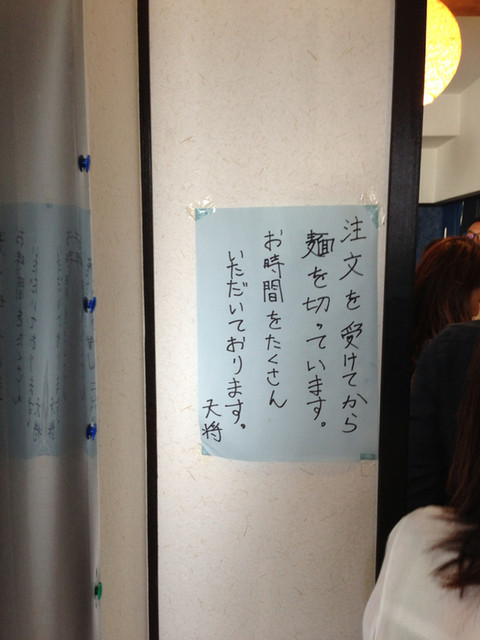 注文を受けてから
麺を切っています。
お時間をたくさん
いただいております。
大将